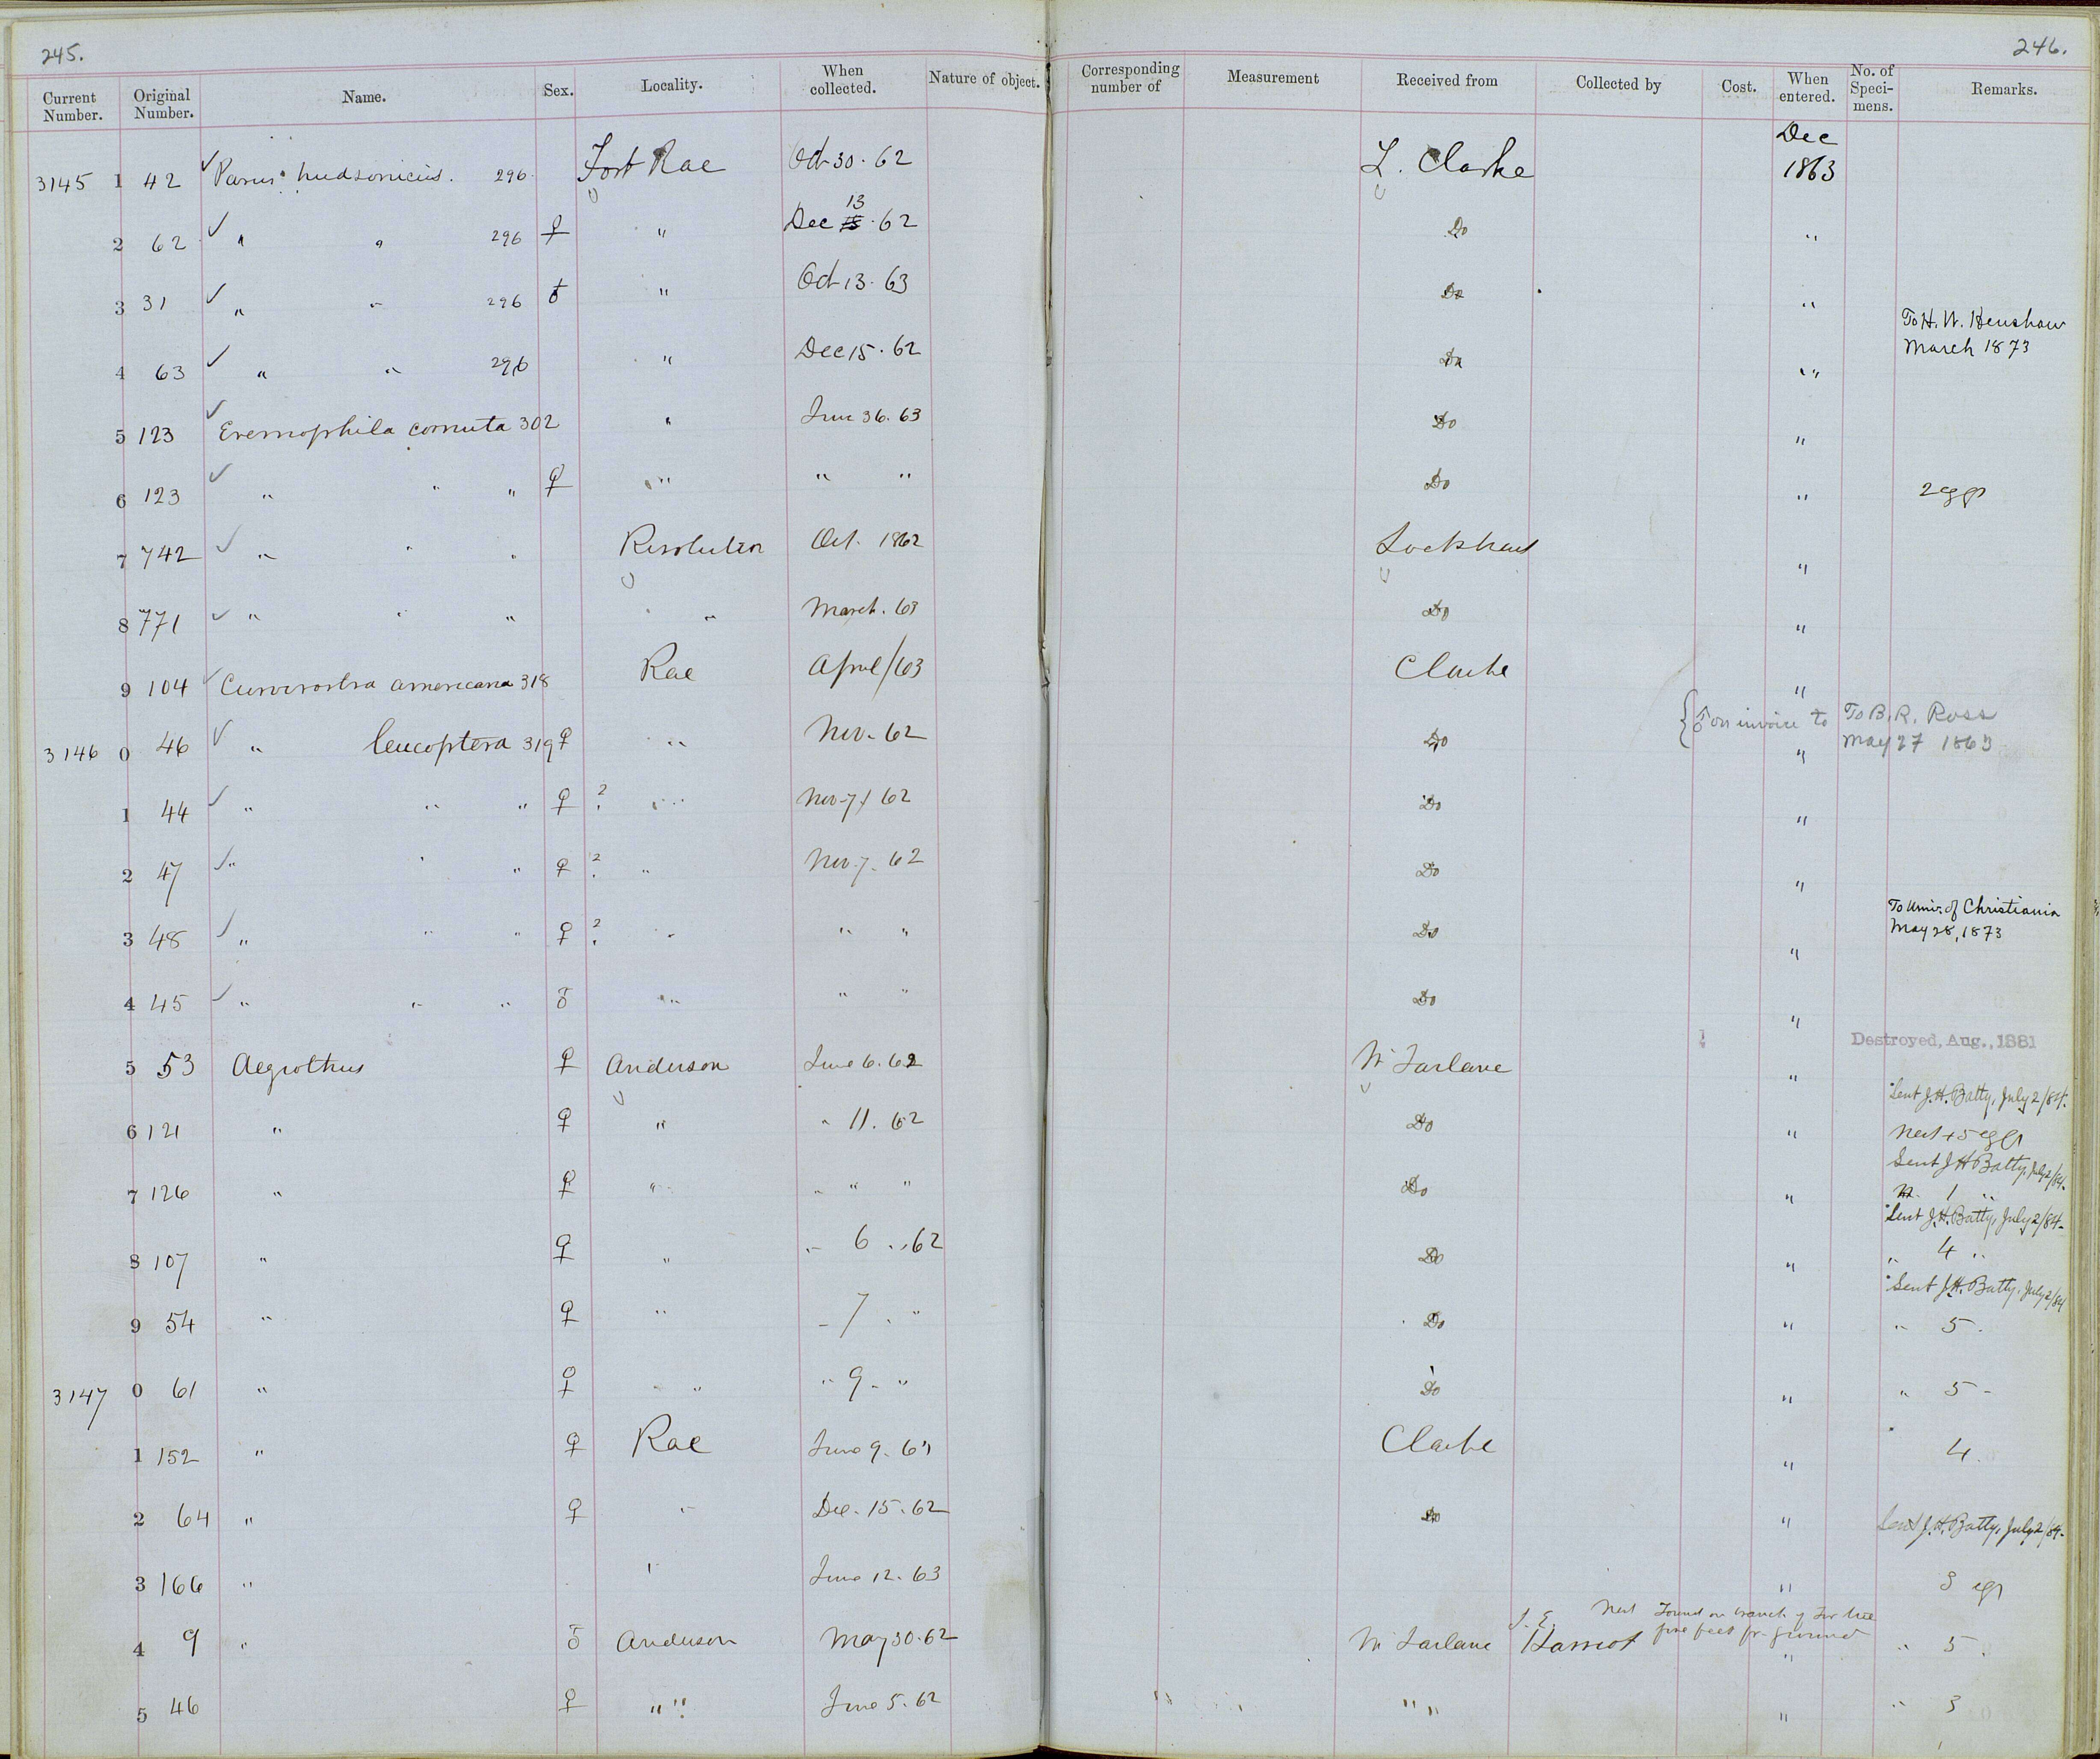 245.
246.
Current Number. Original Number. Name. Sex. Locality. When collected. Nature of object. Corresponding number of Measurement Received from Collected by Cost. When entered. No. of Speci-mens. Remarks.
3145 1 42 ✓ Parus hudsonicus. 296 Fort Rae Oct 30. 62 L. Clarke Dec 1863
2 62 ✓ " " 296 ♀ " Dec 13 .62 Do "
3 31 ✓ " " 296 ♂ " Oct 13. 63 Do "
To H. W. Henshaw
March 1873
4 63 ✓ " " 296 " Dec 15. 62 Do "
5 123 ✓ Eremophila cornuta 302 " June 63 Do "
6 123 ✓ " " " ♀ " " " Do " 2 eggs
7 742 ✓ " " " Resolution Oct. 1862 Lockhart "
8 771 ✓ " " " " March. 63 Do "
9 104 ✓ Curvirostra americana 318 Rae April/63 Clarke "
{ ♂ on invoice to To B. R. Ross
May 27 1863
3146 0 46 ✓ " leucoptera 319 ♀ " Nov. 62 Do "
1 44 ✓ " " " ♀ ? " Nov 7/62 Do "
2 47 ✓ " " " ♀ ? " Nov. 7. 62 Do "
To Univ. of Christiania
May 28, 1873
3 48 ✓ " " " ♀ ? " " " Do "
4 45 ✓ " " " ♂ " " " Do "
Destroyed, Aug., 1881
5 53 Aegiothus ♀ Anderson June 6. 62 McFarlane "
Sent J. H. Batty, July 2/84.
6 121 " ♀ " " 11. 62 Do " Nest + 5 eggs
Sent J H Batty, July 2/84.
7 126 " ♀ " " " " Do " 1 "
Sent J. H. Batty, July 2/84.
8 107 " ♀ " " 6 " 62 Do " " 4 "
Sent J. H. Batty, July 2/84
9 54 " ♀ " " 7 " Do " " 5.
3147 0 61 " ♀ " " 9 " Do " " 5
1 152 " ♀ Rae June 9. 63 Clarke " 4.
2 64 " ♀ " Dec. 15. 62 Do " Sent J. H. Batty, July 2/84.
3 166 " " June 12. 63 " 3 eggs
Nest found on branch of fir tree
five feet fr. ground
4 9 " ♂ Anderson May 30. 62 McFarlane " " 5.
5 46 ♀ " " June 5. 62 " " " " 3